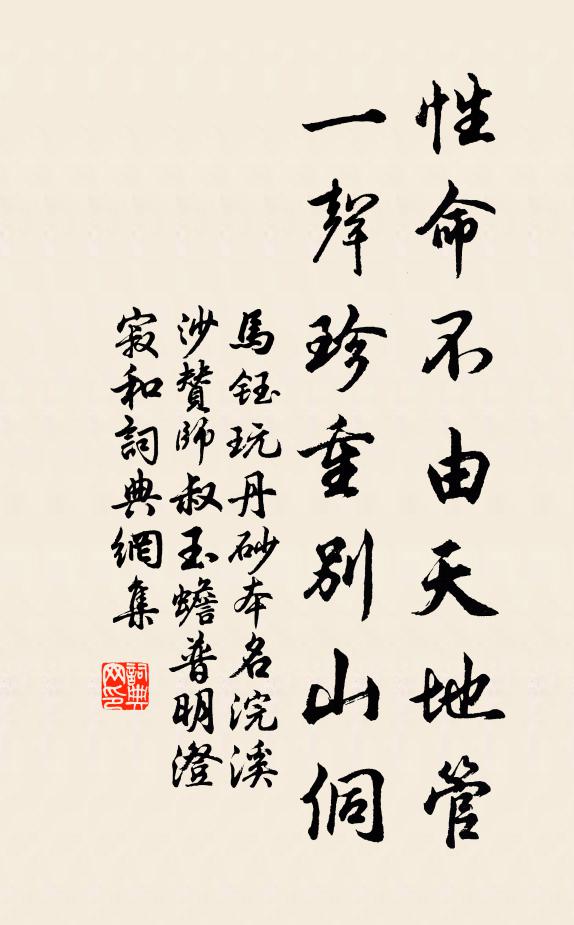 性命不由天地管
一聲珍重別山侗
馬鈺玩丹砂本名浣溪
沙贊師叔玉蟾普明澄
寂和詞典網集
詞典
网印